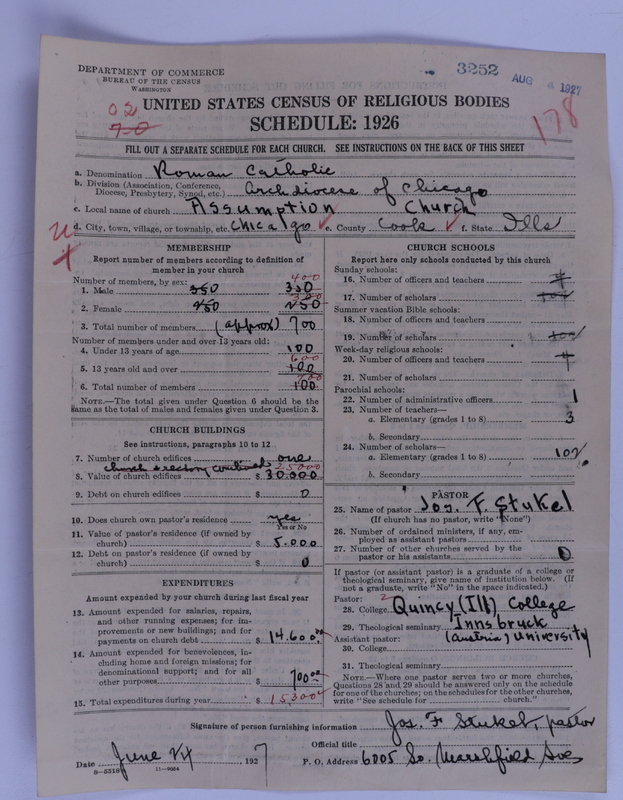 DEPARTMENT OF COMMERCE
BUREAU OF THE CENSUS
WASHINGTON
3252
AUG 4 1927
02
7-0
178
UNITED STATES CENSUS OF RELIGIOUS BODIES
SCHEDULE: 1926
FILL OUT A SEPARATE SCHEDULE FOR EACH CHURCH. SEE INSTRUCTIONS ON THE BACK OF THIS SHEET
a. Denomination Roman Catholic
b. Division (Association, Conference, Diocese, Presbytery, Synod, etc.) Archdiocese of Chicago
c. Local name of church Assumption Church
d. City, town, village, or township, etc. Chicago e. County Cook f. State Ills
MEMBERSHIP
Report number of members according to definition of
member in your church
Number of members, by sex:
400
1. Male 350 330
300
2. Female 450 250
3. Total number of members (approx) 700
Number of members under and over 13 years old:
4. Under 13 years of age 100
600
5. 13 years old and over 100
700
6. Total number of members 100
NOTE.—The total given under Question 6 should be the
same as the total of males and females given under Question 3.
CHURCH BUILDINGS
See instructions, paragraphs 10 to 12
7. Number of church edifices one
church & rectory combined 25000
8. Value of church edifices $ 30.000
9. Debt on church edifices $ 0
10. Does church own pastor's residence yes
Yes or No
11. Value of pastor's residence (if owned by
church) $ 5.000
12. Debt on pastor's residence (if owned by
church) $ 0
EXPENDITURES
Amount expended by your church during last fiscal year
13. Amount expended for salaries, repairs,
and other running expenses; for im-
provements or new buildings; and for
payments on church debt $ 14.600
14. Amount expended for benevolences, in-
cluding home and foreign missions; for
denominational support; and for all
other purposes $ 700
15. Total expenditures during year $ 15300
CHURCH SCHOOLS
Report here only schools conducted by this church
Sunday schools:
16. Number of officers and teachers 4
17. Number of scholars
Summer vacation Bible schools:
18. Number of officers and teachers
19. Number of scholars
Week-day religious schools:
20. Number of officers and teachers 4
21. Number of scholars
Parochial schools:
22. Number of administrative officers 1
23. Number of teachers—
a. Elementary (grades 1 to 8) 3
b. Secondary
24. Number of scholars—
a. Elementary (grades 1 to 8) 102
b. Secondary
PASTOR
25. Name of pastor Jos. F. Stukel
(If church has no pastor, write "None")
26. Number of ordained ministers, if any, em-
ployed as assistant pastors
27. Number of other churches served by the
pastor or his assistants 0
If pastor (or assistant pastor) is a graduate of a college or
theological seminary, give name of institution below. (If
not a graduate, write "No" in the space indicated.)
Pastor: 2
28. College Quincy (Ill) College
29. Theological seminary Innsbruck
Assistant pastor: (Austria) University
30. College
31. Theological seminary
NOTE.—Where one pastor serves two or more churches,
Questions 28 and 29 should be answered only on the schedule
for one of the churches; on the schedules for the other churches,
write "See schedule for church."
Signature of person furnishing information Jos. F Stukel, pastor
Official title
Date June 192 7
P. O. Address 6005 So. Marshfield Ave
8-5518 11-9024